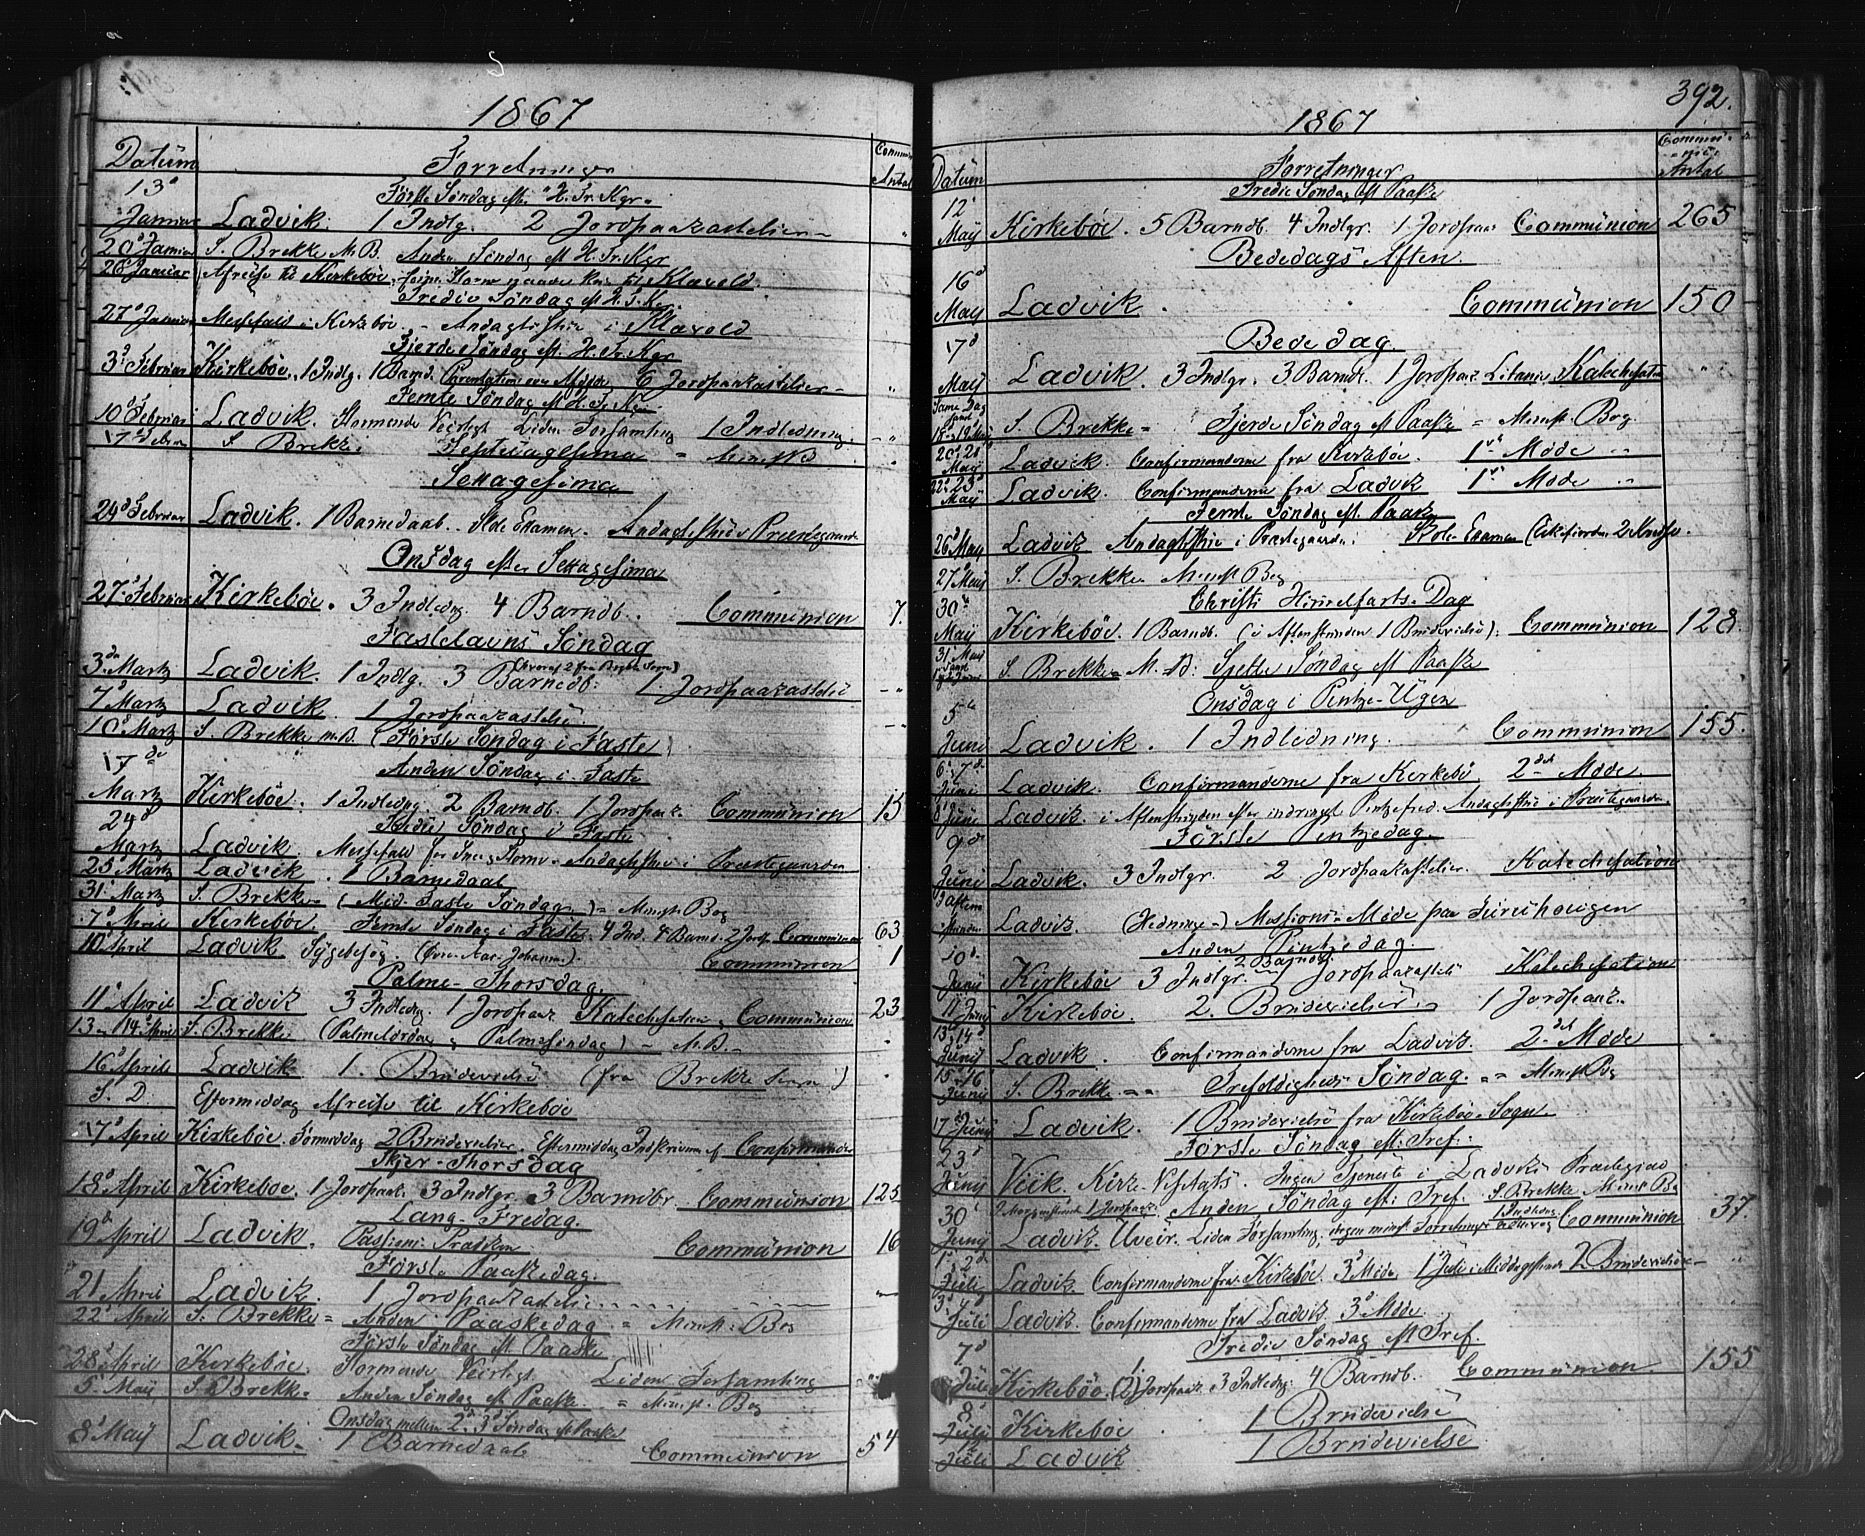 1867
Datum Forretninger Antal
13de Første Søndag eft. H. Tr. Kgr.
Januar Ladvik. 1 Indlg. 2 Jordpaakastelser
20de Januar S. Brekke M. B. Anden Søndag eft H. Tr. Kgr
26 Januar Afreise til Kirkebøe, Storm til Klævold
Tredie Søndag eft H. Tr. Kgr.
27de Januar Messefald i Kirkebøe. - Andagt i Klævold
Fjerde Søndag eft. H. Tr. Kgr
3de Februar Kirkebøe. 1 Indlg. 1 Barnd. 6 Jordpaakastelser
Femte Søndag eft H. Tr. Kgr.
10de Februar Ladvik. Stormende Veirligt Liden Forsamling 1 Indledning.
17de Februar S. Brekke. Septuagesima = Minist. B
Sexagesima
24de Februar Ladvik. 1 Barnedaab. Skole Examen. Præstegaarden
Onsdag efter Sexagesima
27de Februar Kirkebøe. 3 Indledng. 4 Barndb. Communion 7.
Fastelavns Søndag
3die Martz Ladvik. 1 Indlg. 3 Barnedb: 1 Jordpaakastelse
7de Martz Ladvik 1 Jordpaakastelse.
10de Martz S. Brekke M. B. (Første Søndag i Faste)
17de Anden Søndag i Faste
Martz Kirkebøe. 1 Indledng. 2 Barndb. 1 Jordpaak. Communion 15
24de Tredie Søndag i Faste
Martz Ladvik. Messefald for Snee, Storm - i Præstegaarden
25de Martz Ladvik. 1 Barnedaab
31de Martz S. Brekke (Mid-Faste Søndag) = Minist. Bog
7de April Kirkebøe. Femte Søndag i Faste. 4 Ind. 4 Barnd. 2 Jordp. Communion 63
10de April Ladvik Sygebesøg. Communion 1
Palme-Thorsdag.
11te April Ladvik 3 Indledng. 1 Jordpaak. Katechisation. Communion 23
13 - 14de April S. Brekke (Palmelørdag og Palmesøndag) - M. B. -
16de April Ladvik 1. Brudevielse (fra Brekke Sogn)
S. D. Eftermiddag Afreise til Kirkebøe
17de April Kirkebøe. Formiddag 2 Brudevielser. Eftermiddag Indskrivning af Confirmander
Skjær-Thorsdag
18de April Kirkebøe. 1 Jordpaak. 3 Indlgr. 3 Barndbr. Communion 125
Lang-Fredag.
19de April Ladvik. Passions-Prædiken Communion 16
Første Paaskedag.
21 April Ladvik. 1 Jordpaakastelse
22de April S. Brekke = Anden Paaskedag = Minist. Bog
Første Søndag eft. Paaske
28de April Kirkebøe. Stormende Veirligt. Liden Forsamling
5te May S. Brekke Anden Søndag eft Paaske = Minist. Bog
Onsdag mellem 2den og 3die Søndag eft Paaske
8de May Ladvik. 1 Barnedaab Communion 54
392.
1867
Datum Forretninger Antal
Tredie Søndag eft Paaske
12te
May Kirkebøe. 5 Barndb. 4 Indlgr. 1 Jordpaak. Communion 265
Bededags Aften
16de
May Ladvik. Communion 150
17de Bededag
May Ladvik. 3 Indlgr. 3 Barndb. 1 Jordpaak. Litanie, Katechisation
Samme Dag
18-19 May S. Brekke Fjerde Søndag eft Paaske = Minist. Bog
20-21
May Ladvik. Confirmanderne fra Kirkebøe. 1ste Møde
22-23
May Ladvik. Confirmanderne fra Ladvik 1ste Møde
Femte Søndag eft. Paaske
26de May Ladvik i Præstegaarden. Skole Examen
27 May S. Brekke Minist Bog
30te Christi Himmelfarts-Dag
May Kirkebøe 1 Barndb. (i Aftenstunden 1 Brudevielse). Communion 128.
31 May
S. Brekke M. B: Sjette Søndag eft Paaske
Onsdag i Pintze-Ugen
5te
Juni Ladvik. 1 Indledning. Communion 155.
6-7de
Juni Ladvik. Confirmanderne fra Kirkebø 2det Møde.
8de
Juni Ladvik i Præstegaarden.
9de Første Pintzedag.
Juni Ladvik. 3 Indlgr. 2 Jordpaakastelser. Katechisation
Ladvik (Hedninge-) Missions-Møde
10de Anden Pintzedag.
2 Barndb.
Juny Kirkebøe 3 Indlgr. Jordpaakastelse Katechisation
11 Juny Kirkebøe. 2. Brudevielser. 1 Jordpaak.
13-14de
Juny Ladvik. Confirmanderne fra Ladvik. 2det Møde
15-16
Juny S. Brekke Trefoldigheds Søndag. = Minist Bog
17de Juny Ladvik. 1 Brudevielse fra Kirkebøe Sogn
Første Søndag eft. Tref.
23de
Juny Viik. Kirke-Visitats. Ingen Tjeneste i Ladviks Præstegjeld
30te 1 Jordpaak. Anden Søndag eft. Tref. S. Brekke Minist Bog
Juny Ladvik. Uveir. Liden Forsamling. Communion 37
1-2den
Juli Ladvik Confirmanderne fra Kirkebøe. 3die Møde. 1ste Juli i Middagsstunden 2 Brudevielser
3die
Juli Ladvik. Confirmanderne fra Ladvik 3die Møde
7de Tredie Søndag eft Tref.
Juli Kirkebøe. (2) Jordpaak. 3 Indledng. 4 Barndb. Communion 155
8de
Juli Kirkebøe 1 Brudevielse
Juli Ladvik 1 Brudevielse